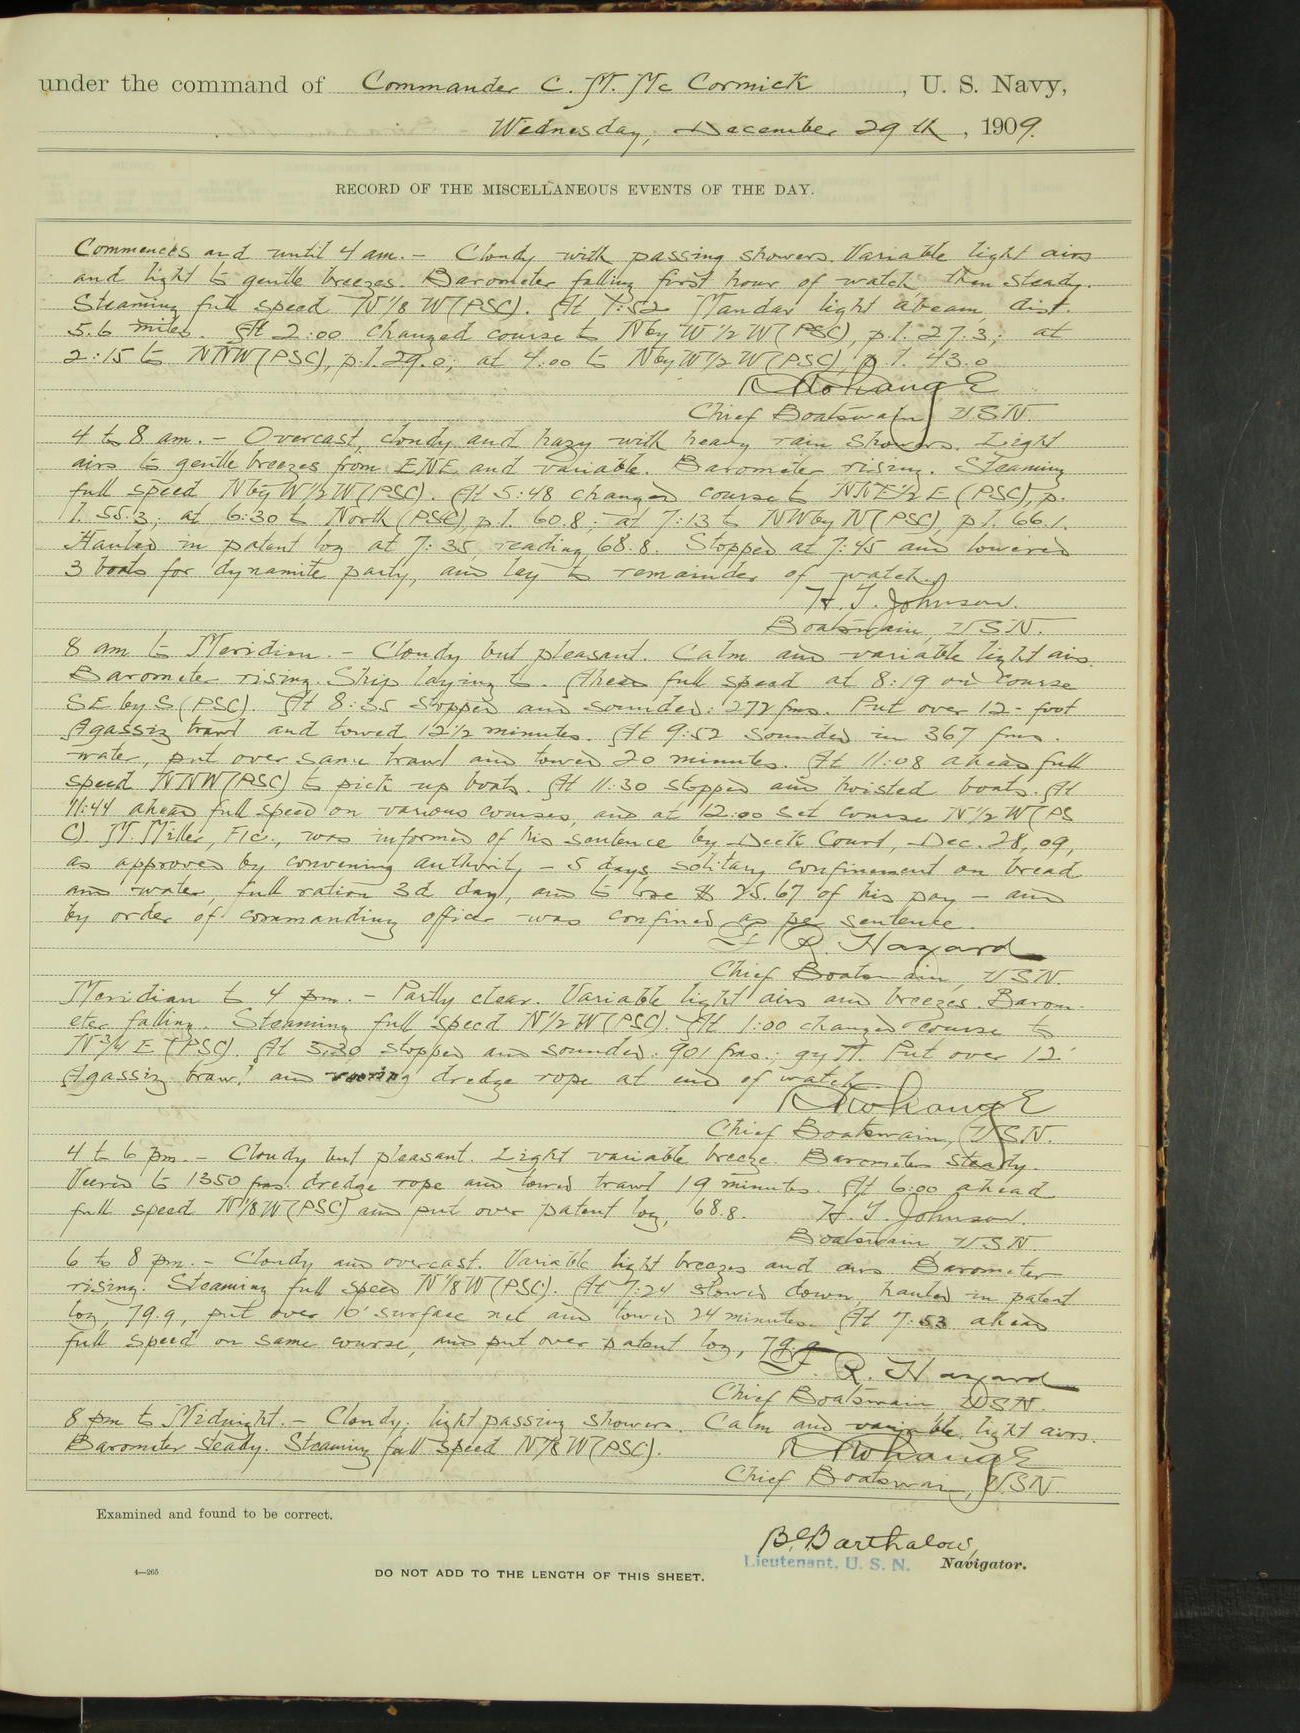 under the command of Commander C. M. Mc Cormick, U. S. Navy,
Wednesday, December 29th, 1909.
RECORD OF THE MISCELLANEOUS EVENTS OF THE DAY.
Commences and until 4 am. – Cloudy with passing showers. Variable light airs
and light to gentle breezes. Barometer falling first hour of watch then steady.
Steaming full speed N 1/8 W (PSC). At 1:52 Mandar light abeam, dist.
5.6 miles. At 2:00 changed course to N by W 1/2 W (PSC), p.l. 27.3; at
2:15 to NNW (PSC), p.l. 29.0; at 4:00 to N by W 1/2 W (PSC), p.l. 43.0
Chief Boatswain, USN.
4 to 8 am. – Overcast, cloudy and hazy with heavy rain showers. Light
airs to gentle breezes from ENE and variable. Barometer rising. Steaming
full speed N by W 1/2 W (PSC). At 5:48 changed course to NNE 1/2 E (PSC), p.
l. 55.3; at 6:30 to North (PSC), p.l. 60.8; at 7:13 to NW by N (PSC), p.l. 66.1.
Hauled in patent log at 7:35, reading 68.8. Stopped at 7:45 and lowered
3 boats for dynamite party, and lay to remainder of watch.
H. T. Johnson.
Boatswain, USN.
8 am to Meridian. – Cloudy but pleasant. Calm and variable light airs.
Barometer rising. Ship laying to. Ahead full speed at 8:19 on course
SE by S (PSC). At 8:35 stopped and sounded: 272 fms. Put over 12-foot
Agassiz trawl and towed 12 1/2 minutes. At 9:52 sounded in 367 fms.
water, put over same trawl and towed 20 minutes. At 11:08 ahead full
speed NNW (PSC) to pick up boats. At 11:30 stopped and hoisted boats. At
11:44 ahead full speed on various courses, and at 12:00 set course N 1/2 W (PS
C). M. Miller, F1c., was informed of his sentence by Deck Court, Dec. 28, 09,
as approved by convening authority – 5 days solitary confinement on bread
and water, full ration 3d day, and to lose $ 25.67 of his pay – and
by order of commanding officer was confined as per sentence.
F. R. Hazard
Chief Boatswain, USN.
Meridian to 4 pm. – Partly clear. Variable light airs and breezes. Barom-
eter falling. Steaming full speed N 1/2 W (PSC). At 1:00 changed course to
N 3/4 E (PSC). At 3:30 stopped and sounded: 901 fms.; gy M. Put over 12'
Agassiz trawl and veering dredge rope at end of watch.
Chief Boatswain, USN.
4 to 6 pm. – Cloudy but pleasant. Light variable breeze. Barometer steady.
Veered to 1350 fms. dredge rope and towed trawl 19 minutes. At 6:00 ahead
full speed N 1/8 W (PSC) and put over patent log, 68.8. H. T. Johnson.
Boatswain, USN.
6 to 8 pm. – Cloudy and overcast. Variable light breezes and airs. Barometer
rising. Steaming full speed N 1/8 W (PSC). At 7:24 slowed down, hauled in patent
log, 79.9, put over 10' surface net and towed 24 minutes. At 7:53 ahead
full speed on same course, and put over patent log, 79.9.
F. R. Hazard
Chief Boatswain USN.
8 pm to Midnight. – Cloudy, light passing showers. Calm and variable light airs.
Barometer steady. Steaming full speed N 1/8 W (PSC).
Chief Boatswain, USN
Examined and found to be correct.
Barthalow,
Lieutenant, U. S. N. Navigator.
4—265
DO NOT ADD TO THE LENGTH OF THIS SHEET.